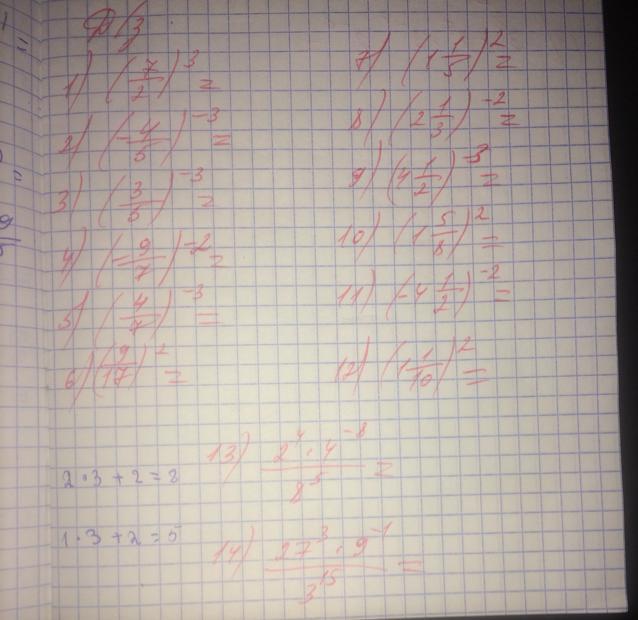 Д/з
1) (7/2)^3 =
2) (-4/5)^-3 =
3) (3/5)^-3 =
4) (-9/7)^-2 =
5) (4/7)^-3 =
6) (9/17)^2 =
7) (1 1/5)^2 =
8) (2 1/3)^-2 =
9) (4 1/2)^-3 =
10) (1 5/8)^2 =
11) (-4 1/2)^-2 =
12) (1 1/10)^2 =
2·3+2=8
1·3+2=5
13) 2^4·4^-8 / 8^5 =
14) 27^3·9^-1 / 3^15 =